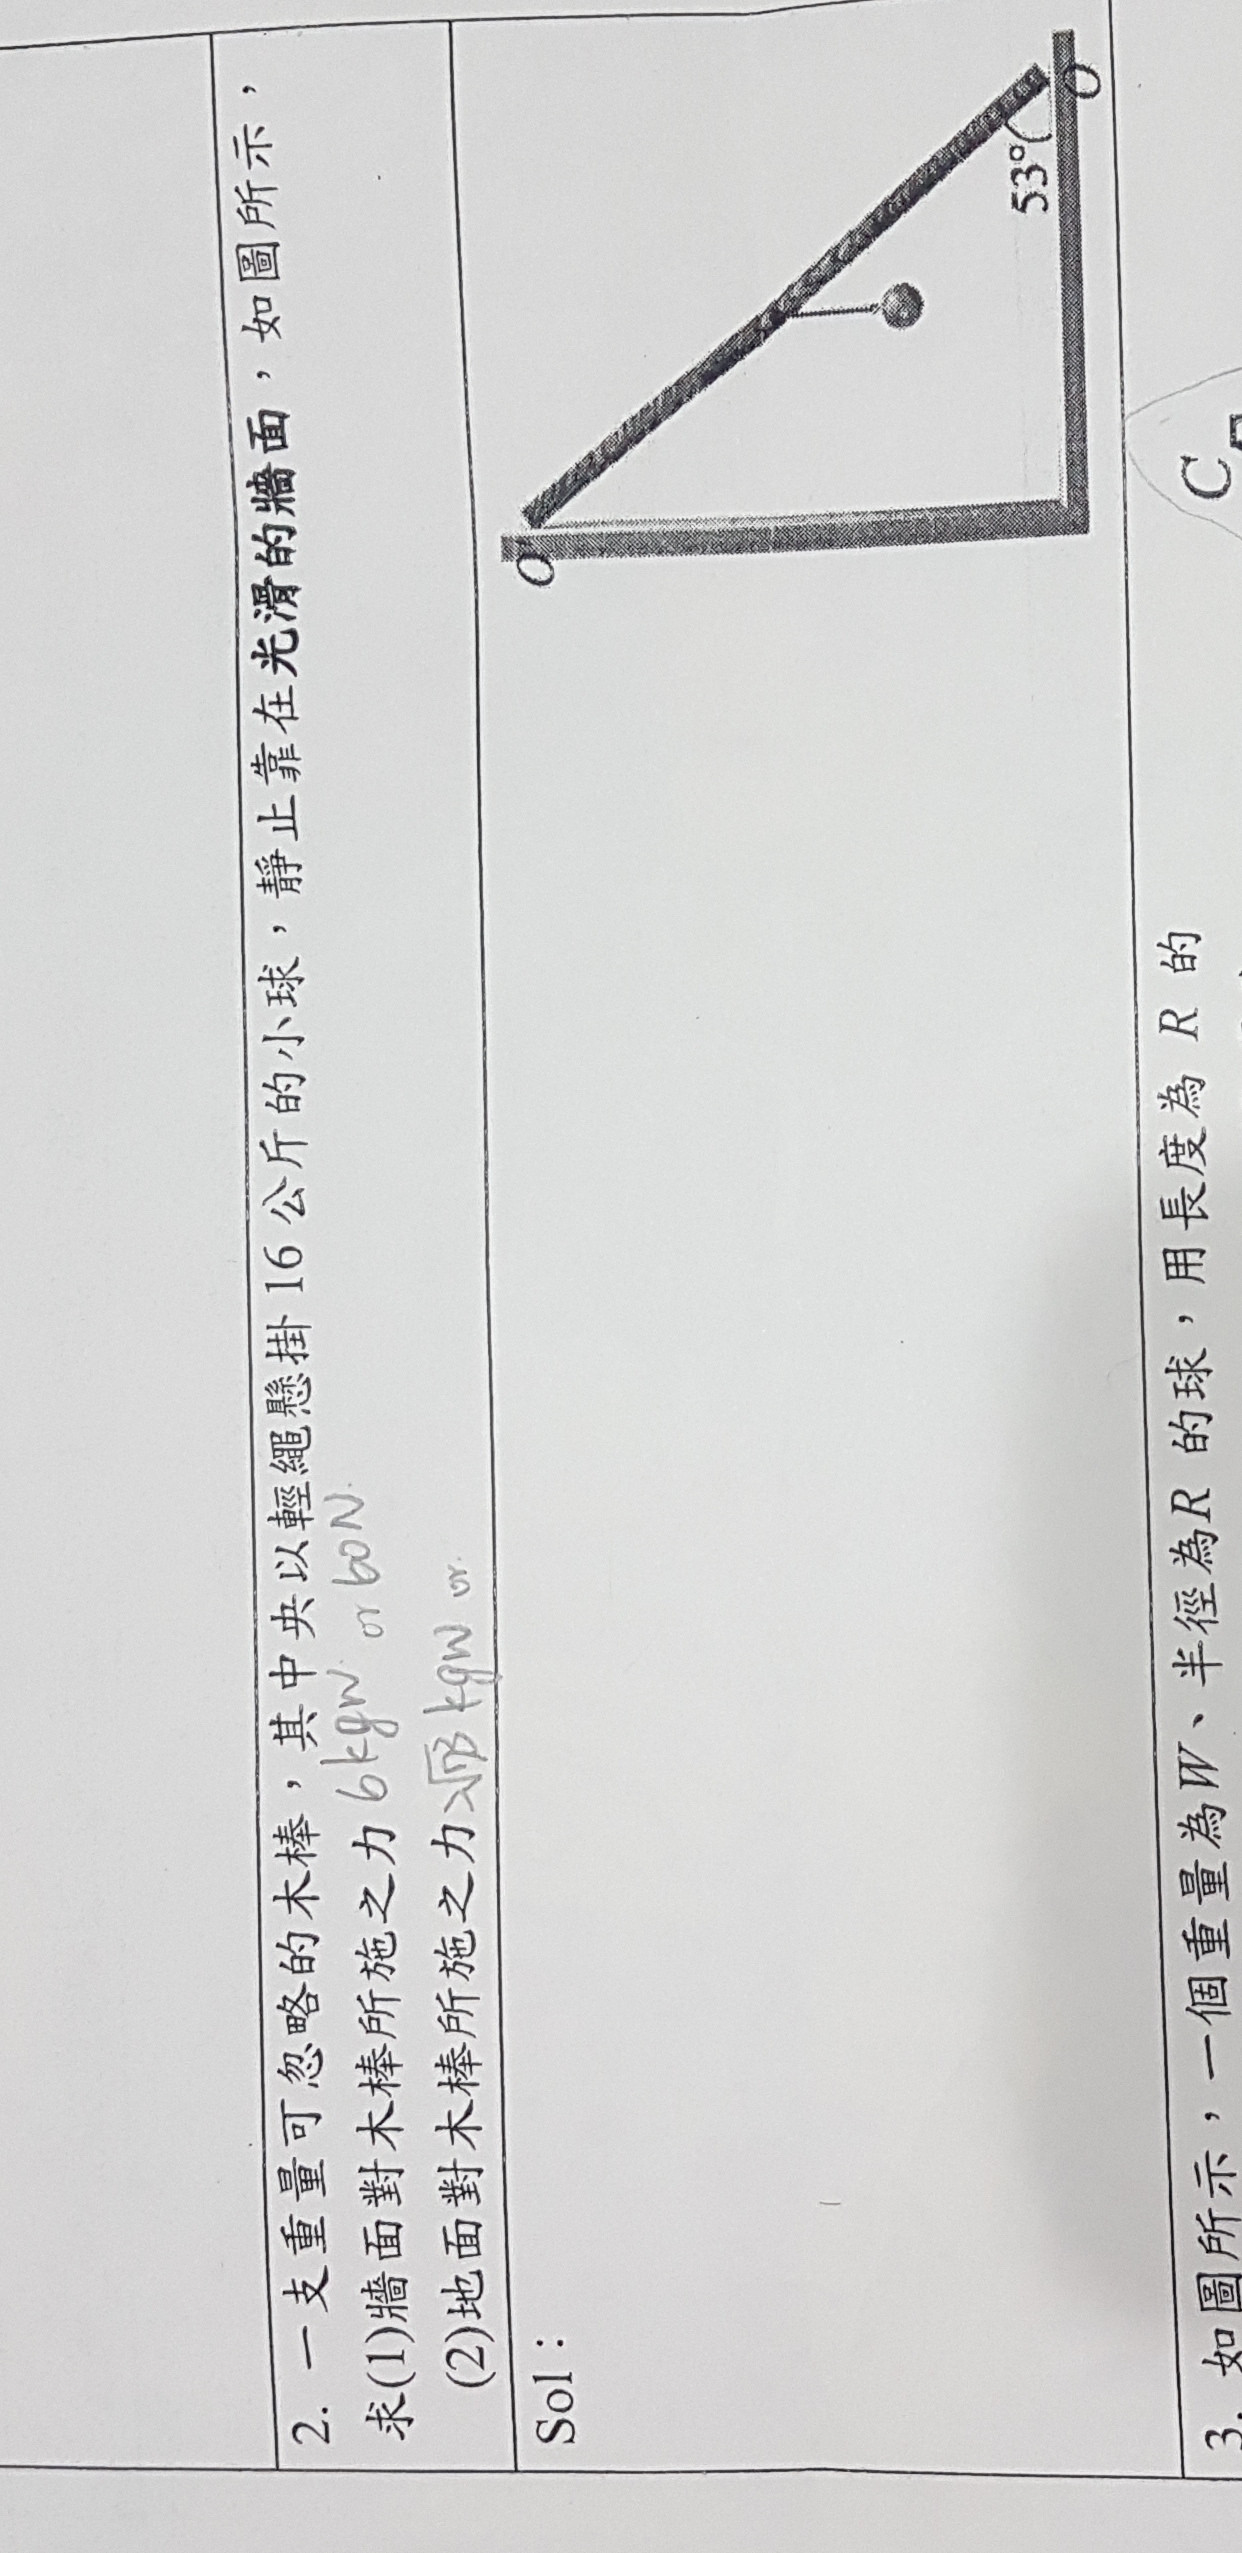 2. 一支重量可忽略的木棒，其中央以輕繩懸掛 16 公斤的小球，靜止靠在光滑的牆面，如圖所示，
求(1)牆面對木棒所施之力 6kgw or 60N.
(2)地面對木棒所施之力 kgw or.
Sol：
O'
53°
O
3. 如圖所示，一個重量為W、半徑為R 的球，用長度為 R 的
C